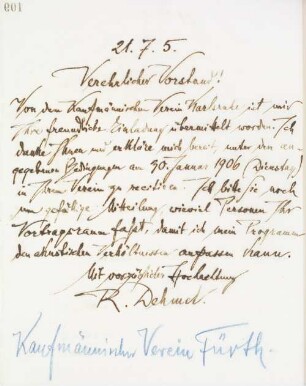 601
21.7.5.
Verehrlicher Vorstand!
Von dem Kaufmännischen Verein Karlsruhe ist mir
Ihre freundliche Einladung übermittelt worden. Ich
danke Ihnen und erkläre mich bereit, unter den an-
gegebenen Bedingungen am 30. Januar 1906 (Dienstag)
in Ihrem Verein zu recitiren. Ich bitte Sie noch
um gefällige Mitteilung, wieviel Personen Ihr
Vortragsraum faßt, damit ich mein Programm
den akustischen Verhältnissen anpassen kann.
Mit vorzüglicher Hochachtung
R. Dehmel.
Kaufmännischer Verein Fürth.